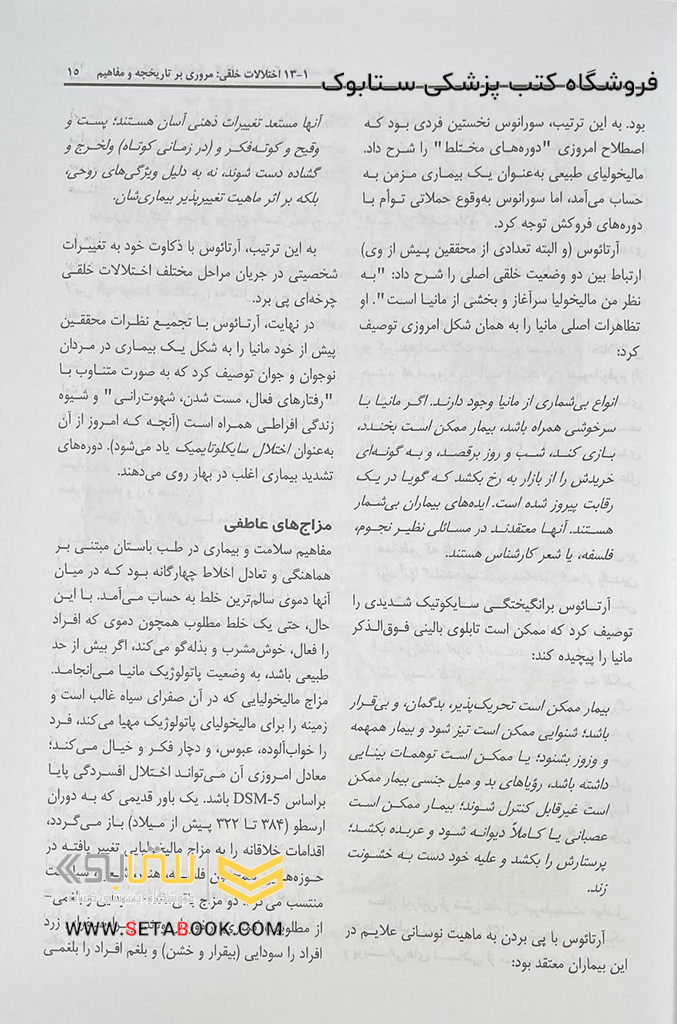 ۱۳-۱ اختلالات خلقی: مروری بر تاریخچه و مفاهیم ۱۵
فروشگاه کتب پزشکی ستابوک
بود. به این ترتیب، سورانوس نخستین فردی بود که
اصطلاح امروزی "دوره‌های مختلط" را شرح داد.
مالیخولیای طبیعی به‌عنوان یک بیماری مزمن به
حساب می‌آمد، اما سورانوس به‌وقوع حملاتی توأم با
دوره‌های فروکش توجه کرد.
آرتائوس (و البته تعدادی از محققین پیش از وی)
ارتباط بین دو وضعیت خلقی اصلی را شرح داد: "به
نظر من مالیخولیا سرآغاز و بخشی از مانیا است". او
تظاهرات اصلی مانیا را به همان شکل امروزی توصیف
کرد:
انواع بی‌شماری از مانیا وجود دارند. اگر مانیا با
سرخوشی همراه باشد، بیمار ممکن است بخندد،
بازی کند، شب و روز برقصد، و به گونه‌ای
خریدش را از بازار به رخ بکشد که گویا در یک
رقابت پیروز شده است. ایده‌های بیماران بی‌شمار
هستند. آنها معتقدند در مسائلی نظیر نجوم،
فلسفه، یا شعر کارشناس هستند.
آرتائوس برانگیختگی سایکوتیک شدیدی را
توصیف کرد که ممکن است تابلوی بالینی فوق‌الذکر
مانیا را پیچیده کند:
بیمار ممکن است تحریک‌پذیر، بدگمان، و بی‌قرار
باشد؛ شنوایی ممکن است تیز شود و بیمار همهمه
و وزوز بشنود؛ یا ممکن است توهمات بینایی
داشته باشد، رؤیاهای بد و میل جنسی بیمار ممکن
است غیرقابل کنترل شوند؛ بیمار ممکن است
عصبانی یا کاملاً دیوانه شود و عربده بکشد؛
پرستارش را بکشد و علیه خود دست به خشونت
زند.
آرتائوس با پی بردن به ماهیت نوسانی علایم در
این بیماران معتقد بود:
آنها مستعد تغییرات ذهنی آسان هستند؛ پست و
وقیح و کوته‌فکر و (در زمانی کوتاه) ولخرج و
گشاده دست شوند، نه به دلیل ویژگی‌های روحی،
بلکه بر اثر ماهیت تغییرپذیر بیماری‌شان.
به این ترتیب، آرتائوس با ذکاوت خود به تغییرات
شخصیتی در جریان مراحل مختلف اختلالات خلقی
چرخه‌ای پی برد.
در نهایت، آرتائوس با تجمیع نظرات محققین
پیش از خود مانیا را به شکل یک بیماری در مردان
نوجوان و جوان توصیف کرد که به صورت متناوب با
"رفتارهای فعال، مست شدن، شهوت‌رانی" و شیوه
زندگی افراطی همراه است (آنچه که امروز از آن
به‌عنوان اختلال سایکلوتایمیک یاد می‌شود). دوره‌های
تشدید بیماری اغلب در بهار روی می‌دهند.
مزاج‌های عاطفی
مفاهیم سلامت و بیماری در طب باستان مبتنی بر
هماهنگی و تعادل اخلاط چهارگانه بود که در میان
آنها دموی سالم‌ترین خلط به حساب می‌آمد. با این
حال، حتی یک خلط مطلوب همچون دموی که افراد
را فعال، خوش‌مشرب و بذله‌گو می‌کند، اگر بیش از حد
طبیعی باشد، به وضعیت پاتولوژیک مانیا می‌انجامد.
مزاج مالیخولیایی که در آن صفرای سیاه غالب است و
زمینه را برای مالیخولیای پاتولوژیک مهیا می‌کند، فرد
را خواب‌آلوده، عبوس، و دچار فکر و خیال می‌کند؛
معادل امروزی آن می‌تواند اختلال افسردگی پایا
براساس DSM-5 باشد. یک باور قدیمی که به دوران
ارسطو (۳۸۴ تا ۳۲۲ پیش از میلاد) باز می‌گردد،
اقدامات خلاقانه را به مزاج مالیخولیایی تغییر یافته در
منتسب دو مزاج
از مطلوبیت زرد
افراد را سودایی (بیقرار و خشن) و بلغم افراد را بلغمی
WWW.SETABOOK.COM